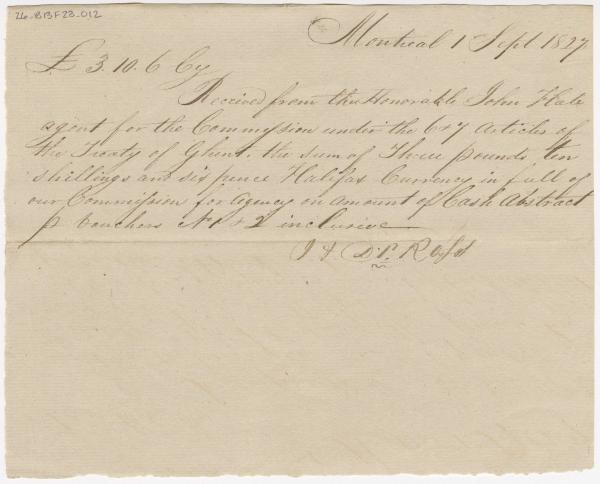 26-B13F23-012
Montreal 1 Sept 1827
£ 3.10.6 Cy
Received from the Honorable John Hale
agent for the Commission under the 6 & 7 Articles of
the Treaty of Ghent, the sum of Three pounds ten
shillings and six pence Halifax Currency in full of
our Commission for Agency on amount of Cash Abstract
p Vouchers No 1 & 2 inclusive
J & D Ross